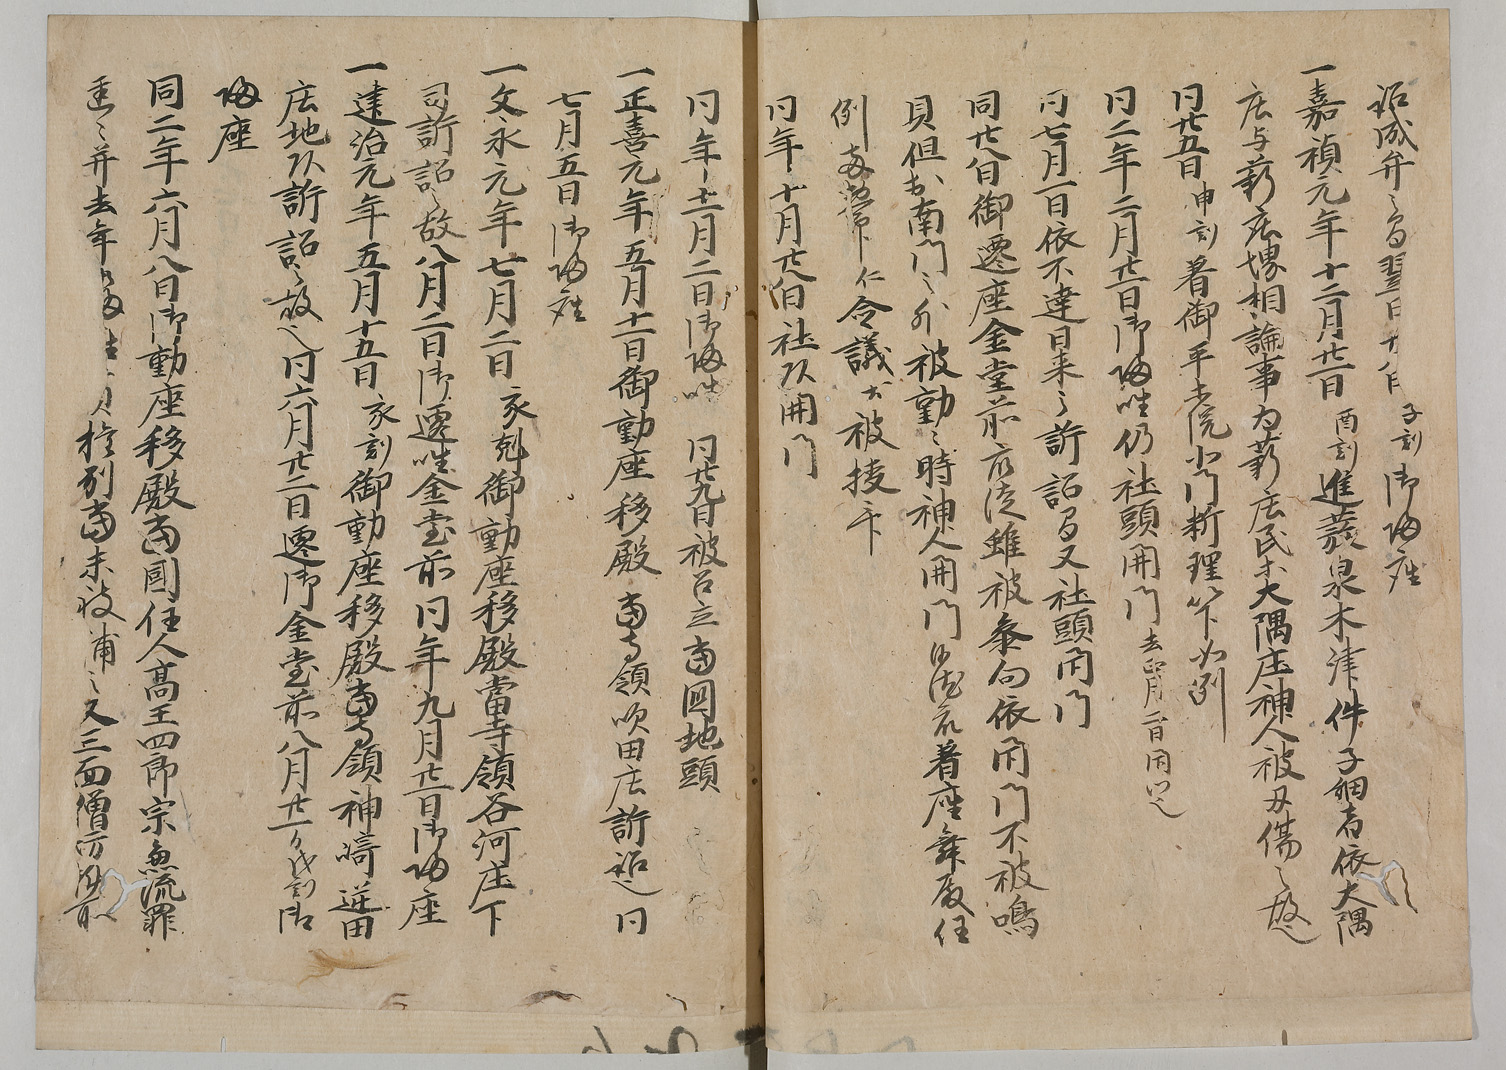 訴成弁之間翌日 子刻御帰座
一嘉禎元年十二月廿一日酉刻進発泉木津件子細者依大隅
庄与薪庄堺相論事為薪庄民等大隅庄神人被刃傷之故也
同廿五日申刻着御平等院北門新理等如例
同二年二月廿一日御帰坐仍社頭開門去正月一日閇門也
同七月一日依不達日来之訴訟間又社頭閇門
同廿八日御遷座金堂前衆徒雖被参向依閇門不被鳴
貝但於南門之外被動之時神人開門 着座舞殿任
例 令議等被捧下
同年十月廿八日社頭開門
同年十二月二日御帰坐 同廿九日被召立当国地頭
一正嘉元年五月十一日御動座移殿当寺領吹田庄訴訟也同
七月五日御帰座
一文永元年七月二日亥剋御動座移殿当寺領谷河庄下
司訴訟之故八月二日御遷坐金堂前同年九月廿一日御帰座
一建治元年五月十五日亥刻御動座移殿当寺領神崎逆田
庄地頭訴訟之故也同六月廿二日遷御金堂前八月廿一日戌刻御
帰座
同二年六月八日御動座移殿当国住人高王四郎宗兼流罪
 并去年 帰 権別当未被補之又三面僧坊